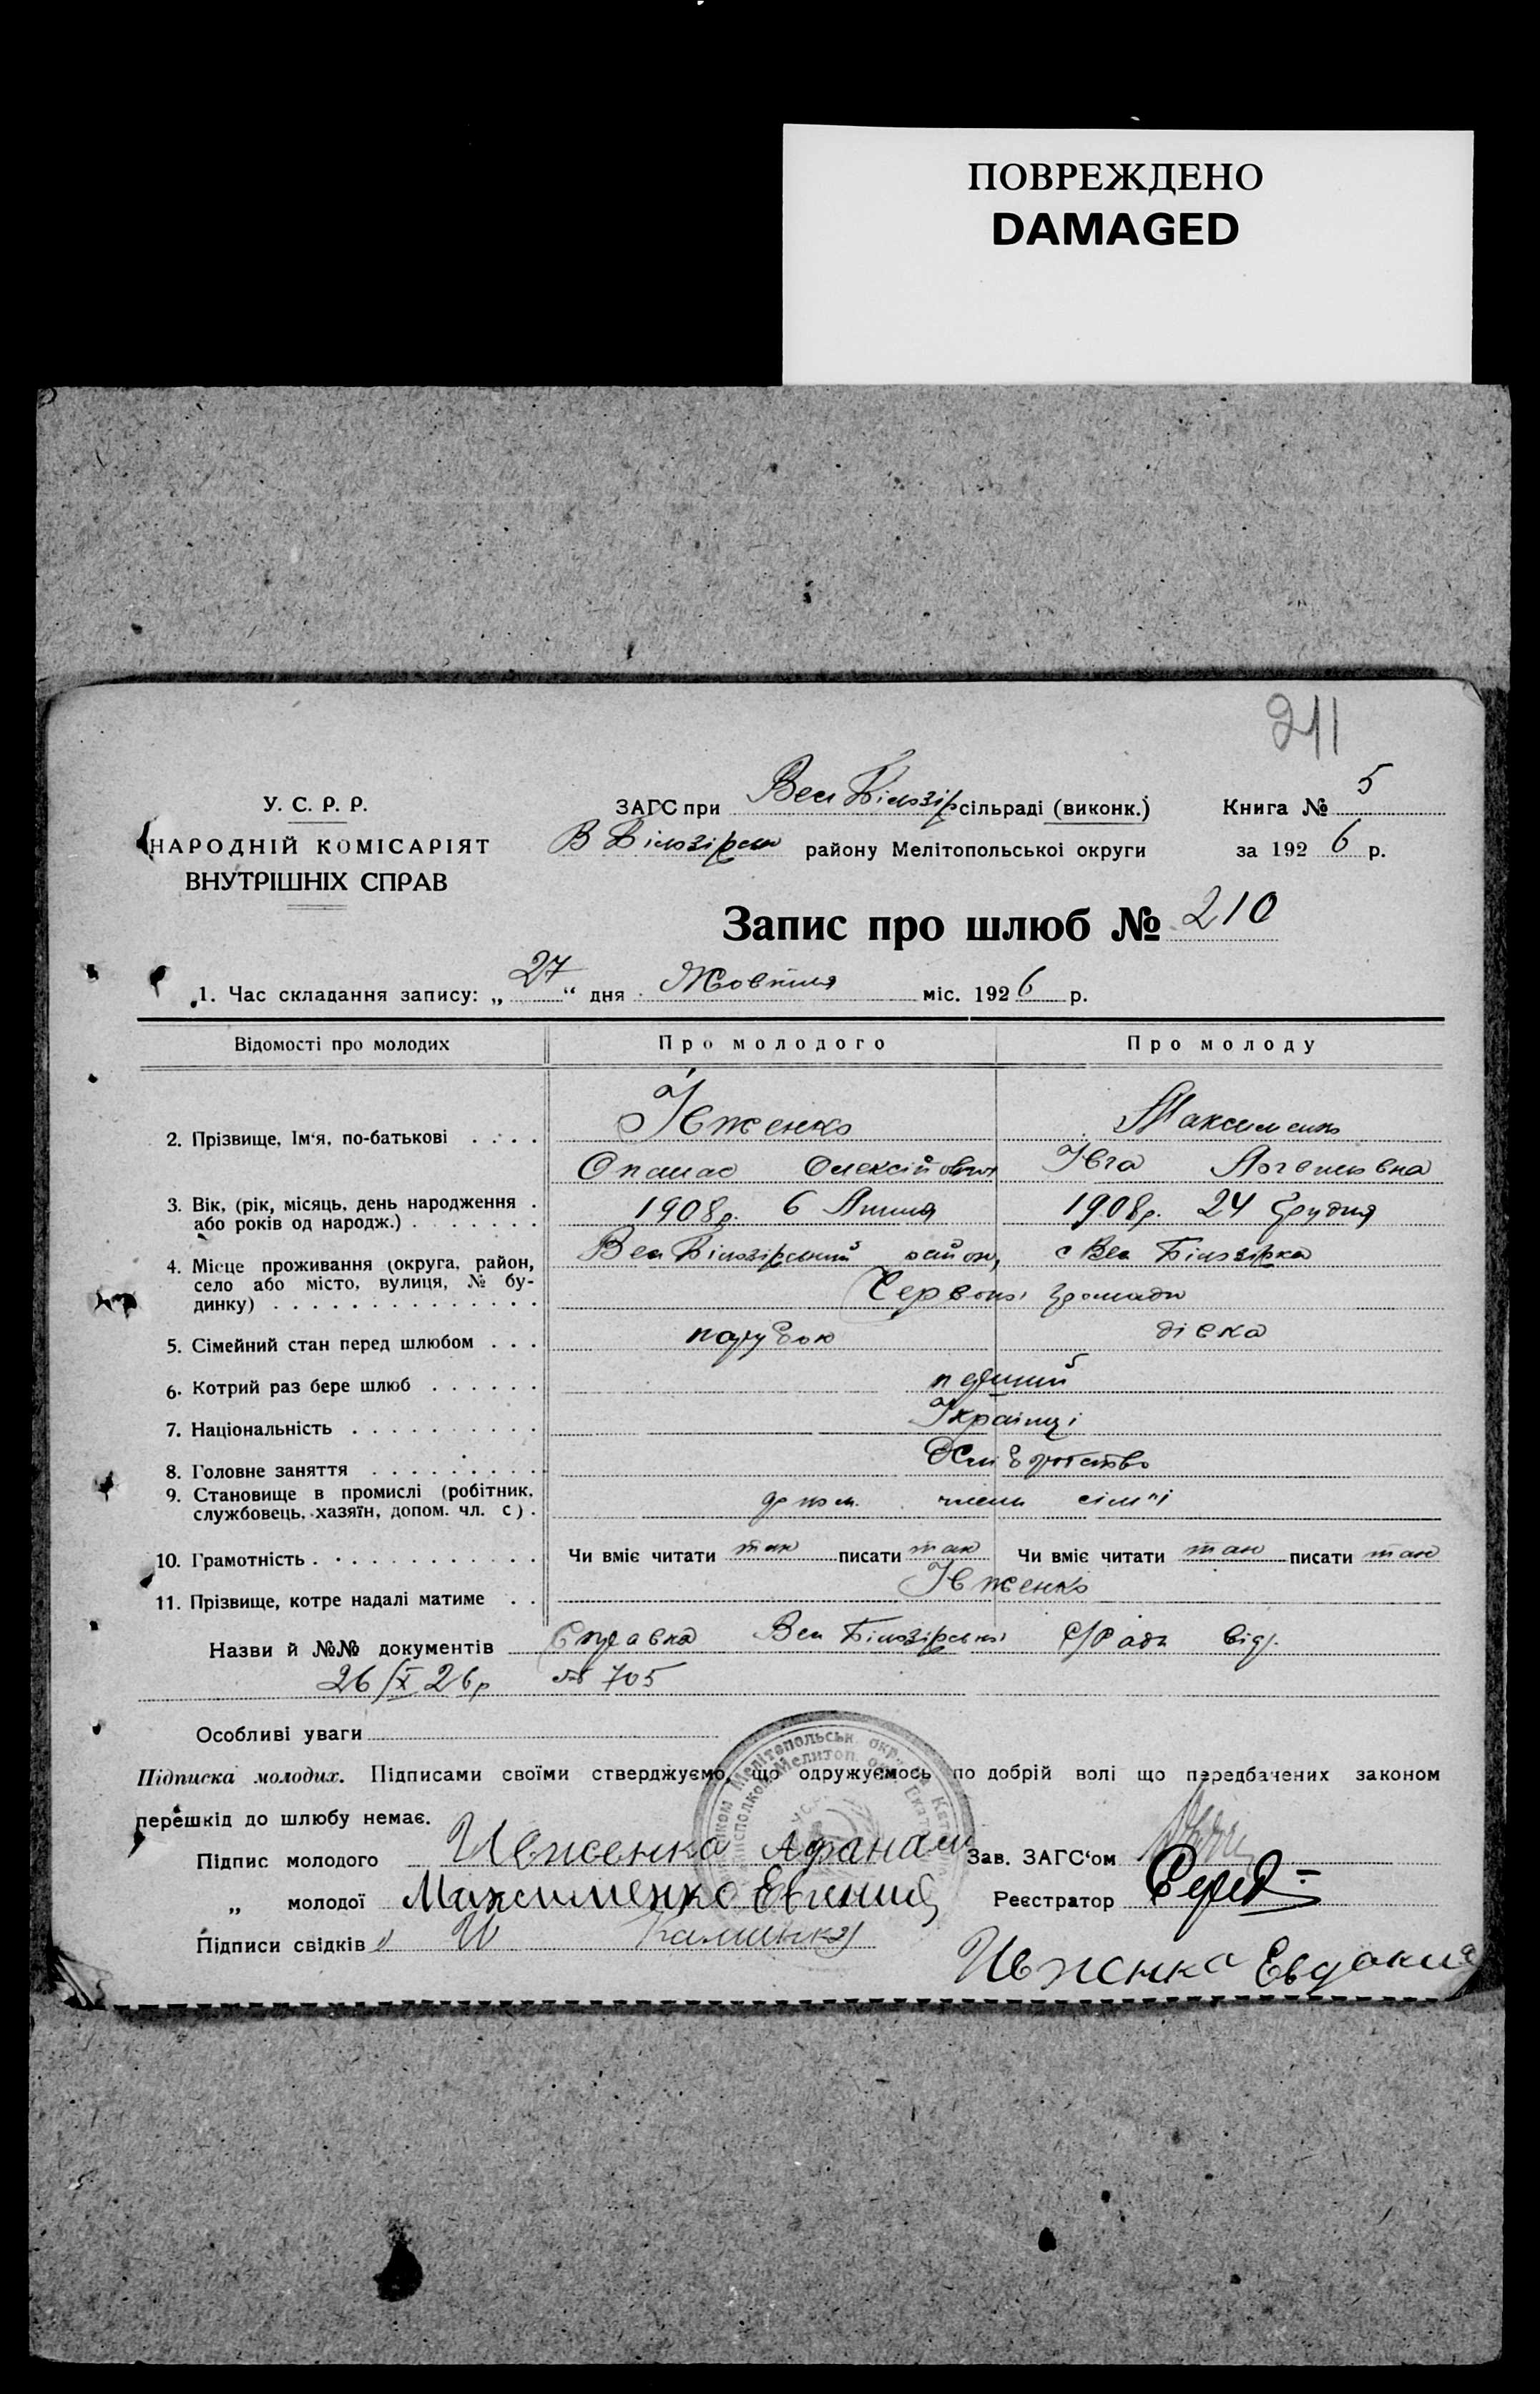 ПОВРЕЖДЕНО
DAMAGED
211
У. С. Р. Р.
НАРОДНІЙ КОМІСАРІЯТ
ВНУТРІШНІХ СПРАВ
ЗАГС при Вел Білозір сільраді (виконк.)
В Білозірсько району Мелітопольської округи
Книга № 5
за 1926 р.
Запис про шлюб № 210
1. Час складання запису: „27“ дня Жовтня міс. 1926 р.
Відомості про молодих Про молодого Про молоду
2. Прізвище, Ім‘я, по-батькові . . . . Івженко Максименко
Опанас Олексійович Івга Логвиновна
3. Вік, (рік, місяць, день народження . або років од народж.) . . . . . . . 1908р. 6 Липня 1908р. 24 Грудня
4. Місце проживання (округа, район, село або місто, вулиця, № будинку) . . . . . . . . . . . . . . Вел Білозірський район, с Вел Білозірка
Червоної громади
5. Сімейний стан перед шлюбом . . . парубою дівка
6. Котрий раз бере шлюб . . . . . . перший
7. Національність . . . . . . . . . . Українці
8. Головне заняття . . . . . . . . . Хліборобство
9. Становище в промислі (робітник, службовець, хазяїн, допом. чл. с) . допом. члени сім"ї
10. Грамотність . . . . . . . . . . . . Чи вміє читати так писати так Чи вміє читати так писати так
11. Прізвище, котре надалі матиме . . Івженко
Назви й №№ документів Справка Вел Білозірської С/Ради від
26/X 26р № 705
Особливі уваги
Підписка молодих. Підписами своїми стверджуємо, що одружуємось по добрій волі що передбачених законом
перешкід до шлюбу немає.
Підпис молодого Ивженко Афанаси Зав. ЗАГС‘ом
„ молодої Максименко Евгений Реєстратор
Підписи свідків
Ивженко Евдокия